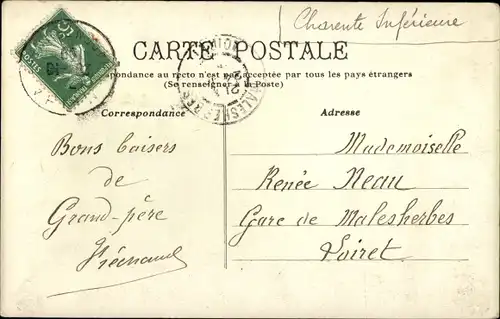 Charente Inférieure
CARTE POSTALE
Correspondance au recto n'est pas acceptée par tous les pays étrangers
(Se renseigner à la Poste)
Correspondance
Adresse
Bons baisers
de
Grand-père
Mademoiselle
Renée Neau
Gare de Malesherbes
Loiret
POSTES
MALESHERBES